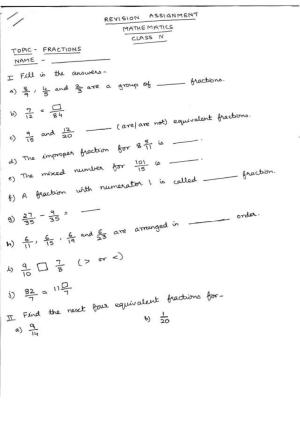 REVISION ASSIGNMENT
MATHEMATICS
CLASS IV
TOPIC - FRACTIONS
NAME - ___________
I Fill in the answers -
a) 5/9, 4/9 and 2/9 are a group of ______ fractions.
b) 7/12 = □/84
c) 9/15 and 12/20 ______ (are/are not) equivalent fractions.
d) The improper fraction for 8 9/11 is ______.
e) The mixed number for 101/15 is ______.
f) A fraction with numerator 1 is called ______ fraction.
g) 27/35 - 9/35 = ______
h) 6/11, 6/15, 6/19 and 6/23 are arranged in ______ order.
i) 9/10 □ 7/8 (> or <)
j) 82/7 = 11 □/7
II Find the next four equivalent fractions for-
a) 9/14 b) 1/20